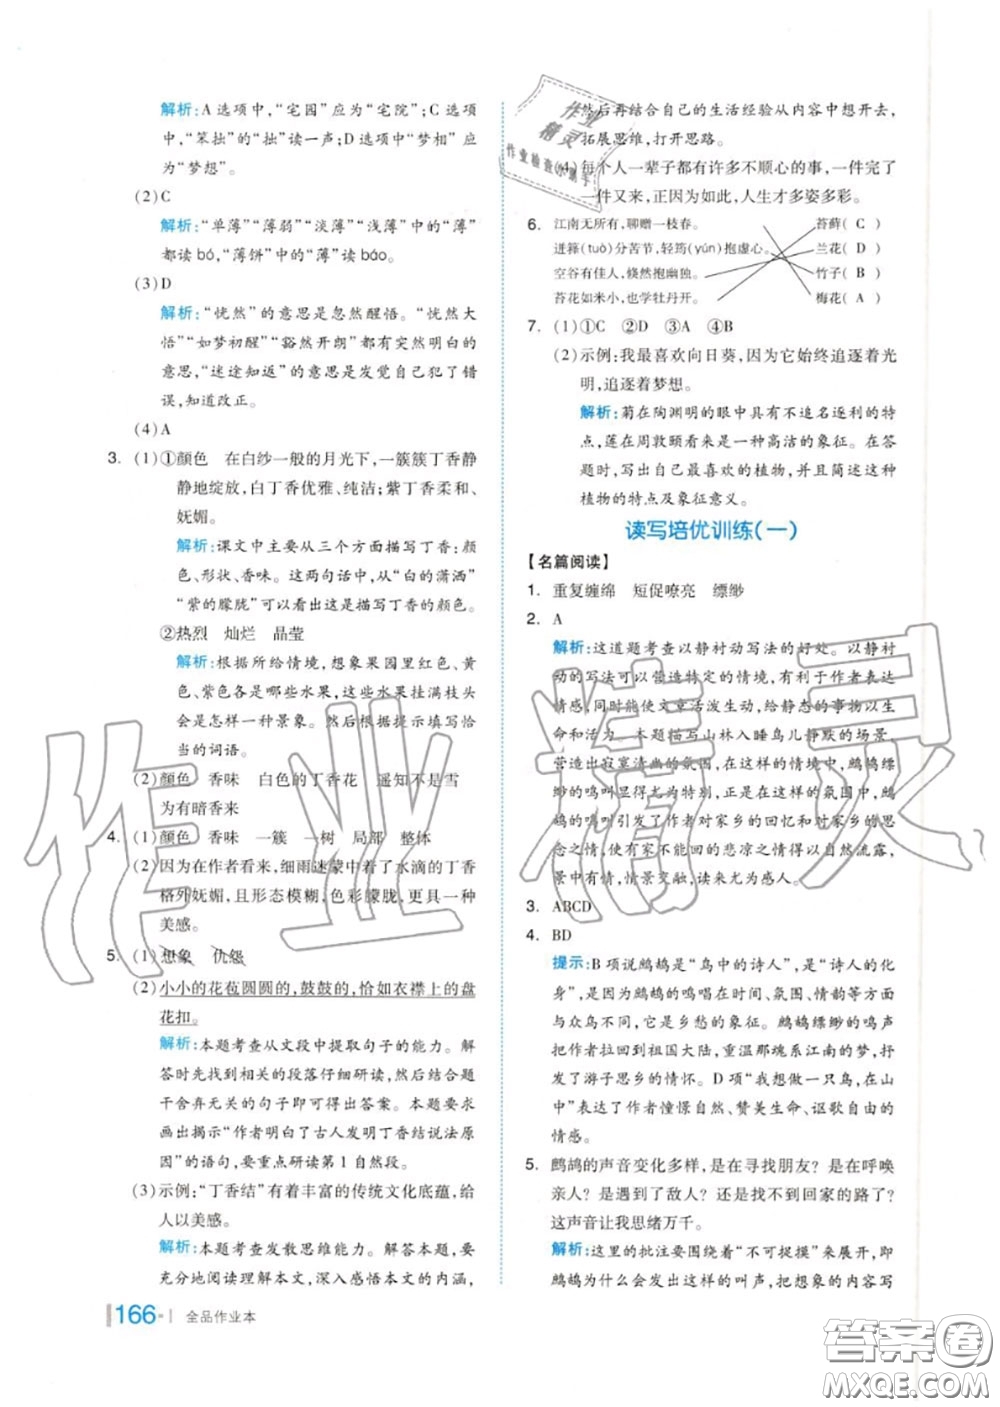 解析:A 选项中,“宅园”应为“宅院”;C 选项
中,“笨拙”的“拙”读一声;D 选项中“梦相”应
为“梦想”。
(2)C
解析:“单薄”“薄弱”“淡薄”“浅薄”中的“薄”
都读 bó,“薄饼”中的“薄”读 báo。
(3)D
解析:“恍然”的意思是忽然醒悟。“恍然大
悟”“如梦初醒”“豁然开朗”都有突然明白的
意思,“迷途知返”的意思是发觉自己犯了错
误,知道改正。
(4)A
3. (1)①颜色 在白纱一般的月光下,一簇簇丁香静
静地绽放,白丁香优雅、纯洁;紫丁香柔和、
妩媚。
解析:课文中主要从三个方面描写丁香:颜
色、形状、香味。这两句话中,从“白的潇洒”
“紫的朦胧”可以看出这是描写丁香的颜色。
②热烈 灿烂 晶莹
解析:根据所给情境,想象果园里红色、黄
色、紫色各是哪些水果,这些水果挂满枝头
会是怎样一种景象。然后根据提示填写恰
当的词语。
(2)颜色 香味 白色的丁香花 遥知不是雪
为有暗香来
4. (1)颜色 香味 一簇 一树 局部 整体
(2)因为在作者看来,细雨迷蒙中着了水滴的丁香
格外妩媚,且形态模糊,色彩朦胧,更具一种
美感。
5. (1)想象 仇怨
(2)小小的花苞圆圆的,鼓鼓的,恰如衣襟上的盘
花扣。
解析:本题考查从文段中提取句子的能力。解
答时先找到相关的段落仔细研读,然后根据题
干舍弃无关的句子即可得出答案。本题要求
画出揭示“作者明白了古人发明丁香结说法原
因”的语句,要重点研读第 1 自然段。
(3)示例:“丁香结”有着丰富的传统文化底蕴,给
人以美感。
解析:本题考查发散思维能力。解答本题,要
充分地阅读理解本文,深入感悟本文的内涵,
166 全品作业本
然后再结合自己的生活经验从内容中想开去,
拓展思维,打开思路。
(4)每个人一辈子都有许多不顺心的事,一件完了
一件又来,正因为如此,人生才多姿多彩。
6. 江南无所有,聊赠一枝春。 苔藓( C )
迸箨(tuò)分苦节,轻筠(yún)抱虚心。 兰花( D )
空谷有佳人,倏然抱幽独。 竹子( B )
苔花如米小,也学牡丹开。 梅花( A )
7. (1)①C ②D ③A ④B
(2)示例:我最喜欢向日葵,因为它始终追逐着光
明,追逐着梦想。
解析:菊在陶渊明的眼中具有不追名逐利的特
点,莲在周敦颐看来是一种高洁的象征。在答
题时,写出自己最喜欢的植物,并且简述这种
植物的特点及象征意义。
读写培优训练(一)
【名篇阅读】
1. 重复缠绵 短促嘹亮 缥缈
2. A
解析:这道题考查以静衬动写法的好处。以静衬
动的写法可以营造特定的情境,有利于作者表达
情感,同时能使文章活泼生动,给静态的事物以生
命和活力。本题描写山林入睡鸟儿静默的场景,
营造出寂寞清幽的氛围,在这样的情境中,鹧鸪缥
缈的鸣叫显得尤为特别,正是在这样的氛围中,鹧
鸪的鸣叫引发了作者对家乡的回忆和对故乡的思
念之情,使有家不能回的悲凉之情得以自然流露,
景中有情,情景交融,读来尤为感人。
3. ABCD
4. BD
提示:B 项说鹧鸪是“鸟中的诗人”,是“诗人的化
身”,是因为鹧鸪的鸣唱在时间、氛围、情韵等方面
与众鸟不同,它是乡愁的象征。鹧鸪缥缈的鸣声
把作者拉回到祖国大陆,重温那魂系江南的梦,抒
发了游子思乡的情怀。D 项“我想做一只鸟,在山
中”表达了作者憧憬自然、赞美生命、讴歌自由的
情感。
5. 鹧鸪的声音变化多样,是在寻找朋友?是在呼唤
亲人?是遇到了敌人?还是找不到回家的路了?
这声音让我思绪万千。
解析:这里的批注要围绕着“不可捉摸”来展开,即
鹧鸪为什么会发出这样的叫声,把想象的内容写
作业
精灵
作业检查小助手
作业精灵
答案圈
MXQE.COM